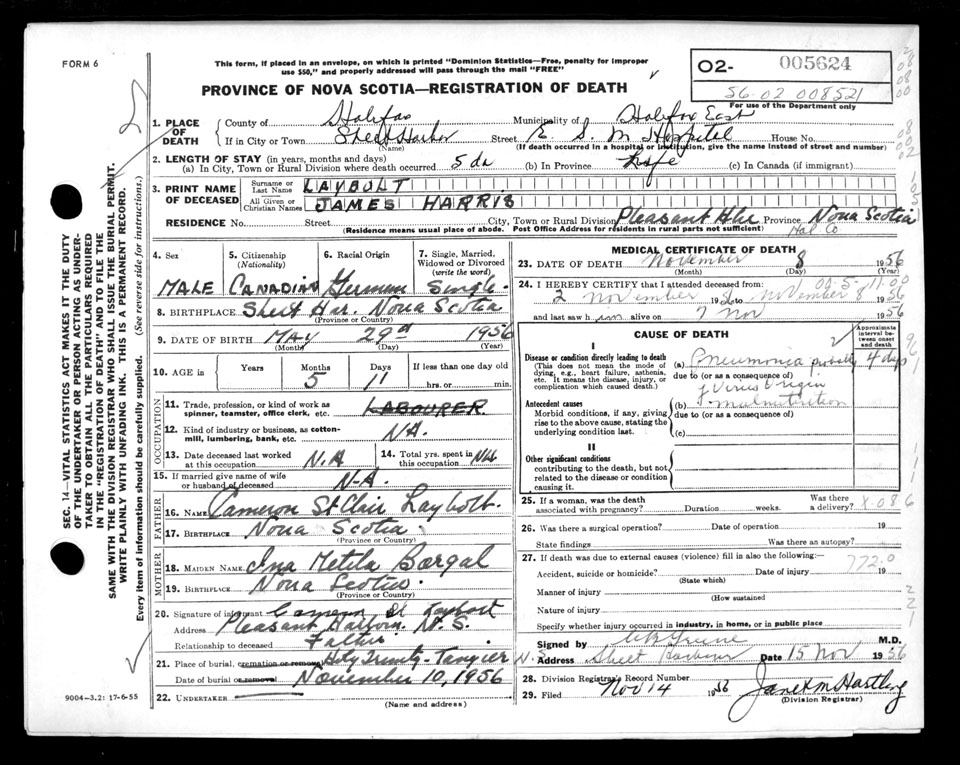 FORM 6
This form, if placed in an envelope, on which is printed "Dominion Statistics—Free, penalty for improper
use $50," and properly addressed will pass through the mail "FREE"
O2- 005624
56-02 008521
For use of the Department only
PROVINCE OF NOVA SCOTIA—REGISTRATION OF DEATH
1. PLACE OF DEATH
County of Halifax Municipality of Halifax East
If in City or Town Sheet Harbor Street E. S. M. Hospital House No.
(Name) (If death occurred in a hospital or institution, give the name instead of street and number)
2. LENGTH OF STAY (in years, months and days)
(a) In City, Town or Rural Division where death occurred 5 da (b) In Province Life (c) In Canada (if immigrant)
3. PRINT NAME OF DECEASED
Surname or Last Name LAYBOLT
All Given or Christian Names JAMES HARRIS
RESIDENCE No. Street City, Town or Rural Division Pleasant Hbr Province Nova Scotia
(Residence means usual place of abode. Post Office Address for residents in rural parts not sufficient) Hal. Co.
4. Sex
MALE
5. Citizenship (Nationality)
CANADIAN
6. Racial Origin
German
7. Single, Married, Widowed or Divorced (write the word)
Single
8. BIRTHPLACE Sheet Har. Nova Scotia
(Province or Country)
9. DATE OF BIRTH MAY 29 1956
(Month) (Day) (Year)
10. AGE in Years Months Days If less than one day old
5 11 hrs. or min.
OCCUPATION
11. Trade, profession, or kind of work as
spinner, teamster, office clerk, etc. LABOURER
12. Kind of industry or business, as cotton-
mill, lumbering, bank, etc. NA.
13. Date deceased last worked
at this occupation N.A
14. Total yrs. spent in
this occupation NA
15. If married give name of wife
or husband of deceased N-A.
FATHER
16. NAME Cameron St Clair Laybolt.
17. BIRTHPLACE Nova Scotia.
(Province or Country)
MOTHER
18. MAIDEN NAME Ina Bargal
19. BIRTHPLACE Nova Scotia.
(Province or Country)
20. Signature of informant Cameron St Laybolt
Address Pleasant Harbour, N. S.
Relationship to deceased Father
21. Place of burial, cremation or removal Holy Trinity - Tangier
Date of burial or removal November 10, 1956
22. UNDERTAKER
(Name and address)
9004-3.2: 17-6-55
MEDICAL CERTIFICATE OF DEATH
23. DATE OF DEATH November 8 1956
(Month) (Day) (Year)
24. I HEREBY CERTIFY that I attended deceased from:
2 November 1956 to November 8 1956
and last saw him on 7 Nov 1956
CAUSE OF DEATH
Approximate interval between onset and death
I
Disease or condition directly leading to death
(This does not mean the mode of dying, e.g., heart failure, asthenia, etc. It means the disease, injury, or complication which caused death.)
(a) Pneumonia probably 4 days
due to (or as a consequence of)
of Virus Origin
Antecedent causes
Morbid conditions, if any, giving rise to the above cause, stating the underlying condition last.
(b) malnutrition
due to (or as a consequence of)
(c)
II
Other significant conditions
contributing to the death, but not related to the disease or condition causing it.
25. If a woman, was the death Was there
associated with pregnancy? Duration weeks. a delivery?
26. Was there a surgical operation? Date of operation 19
State findings Was there an autopsy?
27. If death was due to external causes (violence) fill in also the following:
772.0
Accident, suicide or homicide? Date of injury 19
(State which)
Manner of injury
(How sustained
Nature of injury
Specify whether injury occurred in industry, in home, or in public place
Signed by M.D.
N.S. Address Sheet Harbour Date 15 Nov 1956
28. Division Registrar's Record Number
29. Filed Nov 14 1956 Janet M Hartling
(Division Registrar)
SEC. 14—VITAL STATISTICS ACT MAKES IT THE DUTY
OF THE UNDERTAKER OR PERSON ACTING AS UNDER-
TAKER TO OBTAIN ALL THE PARTICULARS REQUIRED
IN THE "REGISTRATION OF DEATH" AND TO FILE THE
SAME WITH THE DIVISION REGISTRAR WHO SHALL ISSUE THE BURIAL PERMIT.
WRITE PLAINLY WITH UNFADING INK. THIS IS A PERMANENT RECORD.
Every item of information should be carefully supplied. (See reverse side for instructions.)